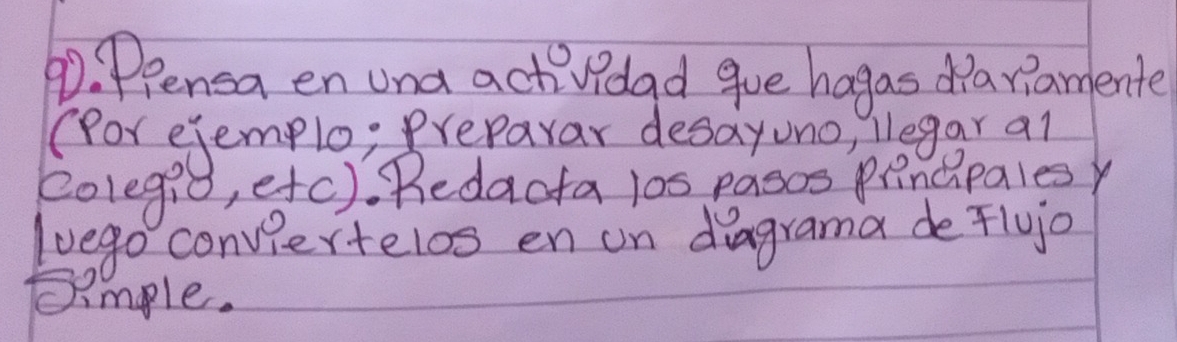 9). Piensa en una actividad que hagas diariamente
(Por ejemplo; Preparar desayuno, llegar al
colegio, etc). Redacta los pasos principales y
luego conviertelos en un diagrama de Flujo
Simple.